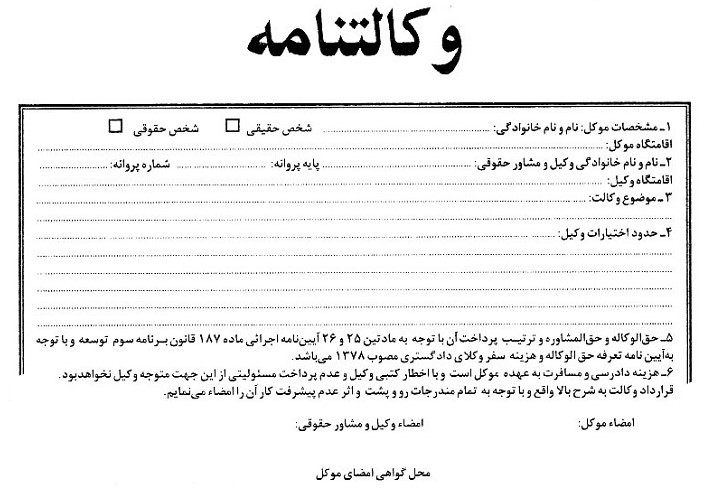 وکالتنامه
۱ـ مشخصات موکل: نام و نام خانوادگی: شخص حقیقی □ شخص حقوقی □
اقامتگاه موکل:
۲ـ نام و نام خانوادگی وکیل و مشاور حقوقی: پایه پروانه: شماره پروانه:
اقامتگاه وکیل:
۳ـ موضوع وکالت:
۴ـ حدود اختیارات وکیل:
۵ـ حق‌الوکاله و حق‌المشاوره و ترتیب پرداخت آن با توجه به مادتین ۲۵ و ۲۶ آیین‌نامه اجرائی ماده ۱۸۷ قانون برنامه سوم توسعه و با توجه
به‌آیین نامه تعرفه حق الوکاله و هزینه سفر وکلای دادگستری مصوب ۱۳۷۸ می‌باشد.
۶ـ هزینه دادرسی و مسافرت به عهده موکل است و با اخطار کتبی وکیل و عدم پرداخت مسئولیتی از این جهت متوجه وکیل نخواهدبود.
قرارداد وکالت به شرح بالا واقع و با توجه به تمام مندرجات رو و پشت و اثر عدم پیشرفت کار آن را امضاء می‌نمایم.
امضاء موکل: امضاء وکیل و مشاور حقوقی:
محل گواهی امضای موکل